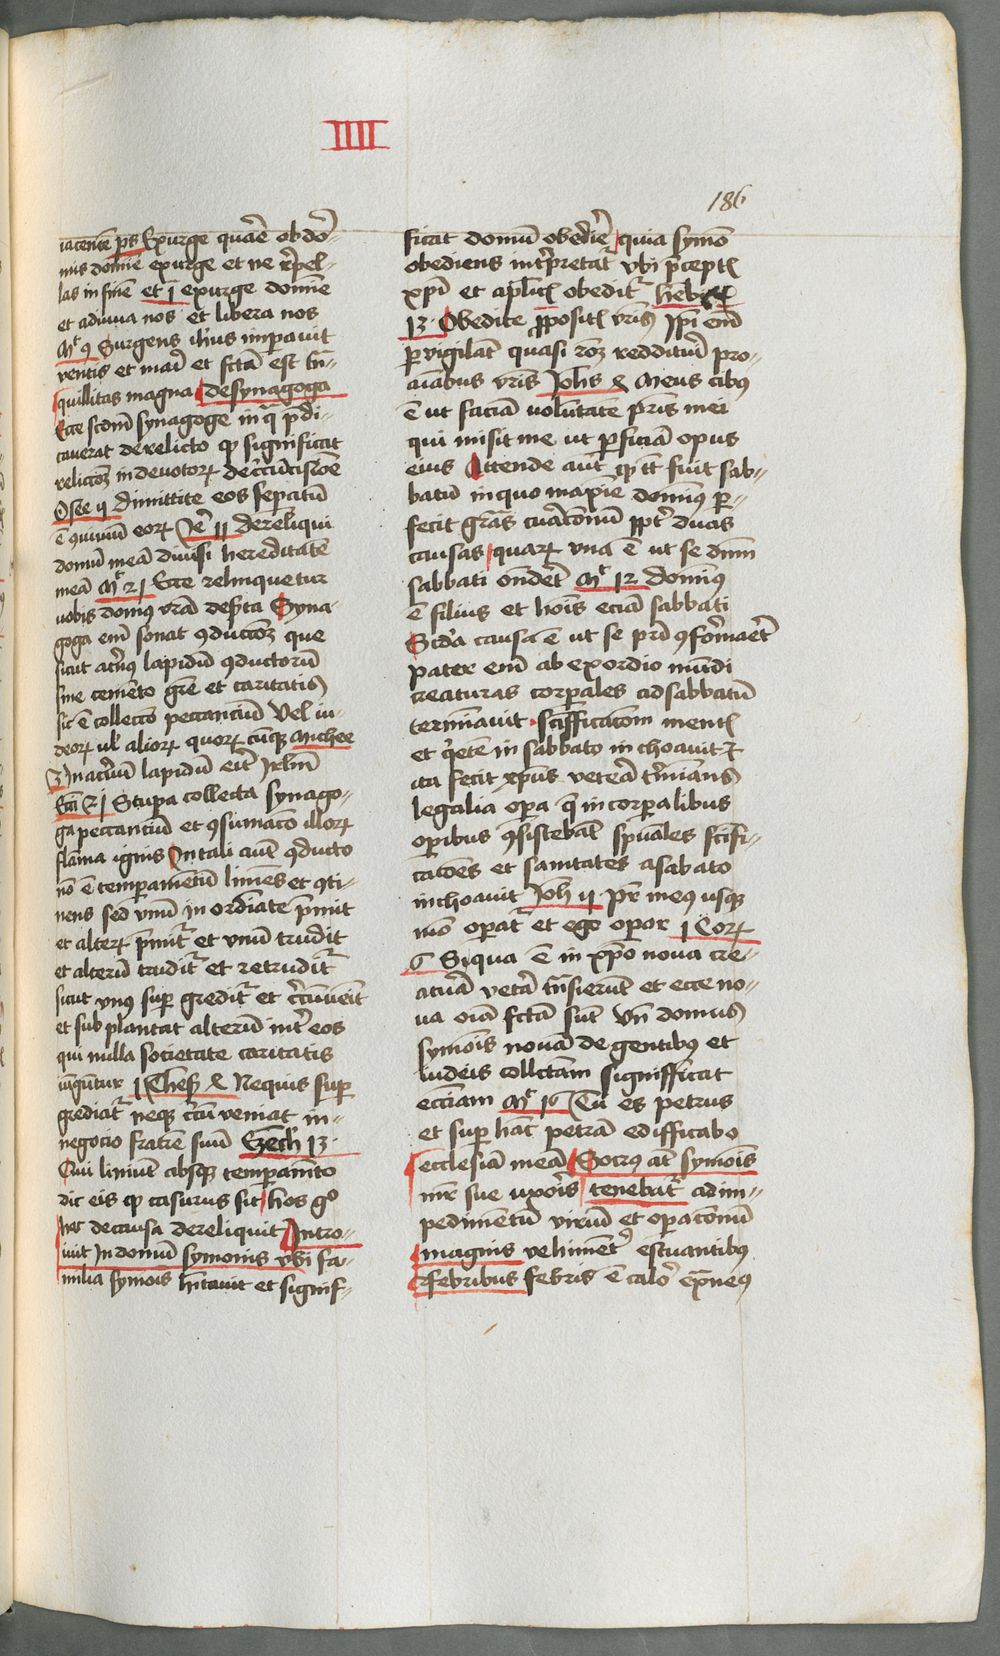 IIII
186
iacente ps Exurge quare obdor-
mis domine exurge et ne repel-
las in fine et j exurge domine
et adiuua nos et libera nos
Mr 9 Surgens ihus imperauit
ventis et mari et fcta est tn-
quillitas magna de synagoga
Ecce scdm synagoge in qua predi-
cauerat derelicto qp significat
relictoz indeuotorum de circucisione
Osee ij dimittite eos sepcatum
e conuiuium eorum Ire 11 dereliqui
domum mea diuisi hereditate
mea Mr 21 Ecce relinquetur
uobis domus vra deserta Syna-
goga eni sonat conductoz que
sicut aceruus lapidum conductorum
sine cemento gre et caritatis
sic e collecto peccancium vel iu-
deorum ul aliorum quorumcunque Michee
3 In aceruum lapidum erit Irlm
Eccl 21 Stupa collecta synago-
ga peccancium et consumaco illorum
flama ignis In tali aut conducto
no e temperamentum limes et conti-
nens sed vnum inordinate premit
et alterum premitur et vnum trudit
et alterum truditur et retruditur
sicut vnus supergreditur et circumuenit
et subplantat alterum inter eos
qui nulla societate caritatis
iunguntur 1 Thess 4 Nequis super
grediatur neque circumueniat in-
negocio fratrem suum Ezech 13
Qui liniunt absque temperamento
dic eis qp casurus sit hos go
hac de causa dereliquit Intro-
iuit in domum symonis vbi fa-
milia symois hitauit et signif-
ficat domum obedire quia symo
obediens interpretatur vbi preceptis
xpi et aplicis obeditur heb
13 Obedite prepositis vris Ipi eni
peruigilant quasi roz reddituri pro-
aiabus vris Johs 4 Meus cibus
e ut faciam voluntate pris mei
qui misit me ut perficiam opus
eius Attende aut qp tc fuit sab-
batum in quo maxime dominus per-
fecit gras curationum propter duas
causas quarum vna e ut se dnm
sabbati onderet Mr 12 dominus
e filius et hois eciam sabbati
Scda causa e ut se pri conformaret
pater eni ab exordio mundi
creaturas corporales ad sabbatum
terminauit scifficatiom mentis
et quietem in sabbato inchoauit et
ita fecit xpus vetera terminans
legalia opera que in corporalibus
operibus consistebant spuales scifi-
caciones et sanitates a sabato
inchoauit Joh ij Pr meus usque
mo operatur et ego operor 1 Cor
6 Siqua e in xpo noua cre-
atura vetera transierunt et ecce no-
ua oia fcta sunt vn domus
symois nouam de gentibus et
iudeis collectam signifficat
ecciam Mr 16 Tu es petrus
et super hanc petram edifficabo
ecclesiam meam Socrus at symois
mr sue vxoris tenebatur ad im-
pedimentum virium et operationum
magnis vehimenter estuantibus
febribus febris e calor extraneus